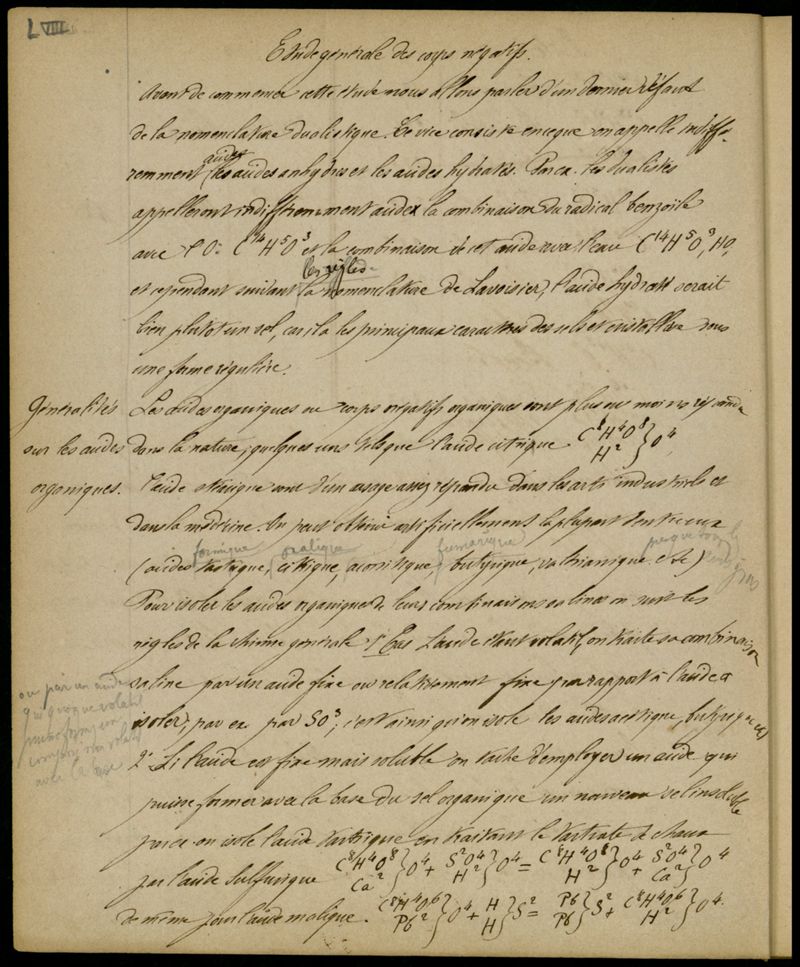 LVIII
Etude générale des corps négatifs.
Avant de commencer cette étude nous allons parler d'un dernier défaut
de la nomenclature dualistique. Ce vice consiste en ce que on appelle indiffé-
remment acides les acides anhydres et les acides hydratés. Par ex. les dualistes
appelleront indifféremment acides la combinaison du radical benzoïle
avec l'O = C¹⁴H⁵O³ et la combinaison de cet acide avec l'eau C¹⁴H⁵O³, HO,
et cependant suivant les règles la nomenclature de Lavoisier, l'acide hydraté serait
bien plutôt un sel, car il a les principaux caractères des sels et cristallise sous
une forme régulière.
Généralités sur les acides organiques.
Les acides organiques ou corps négatifs organiques sont plus ou moins répandus
dans la nature, quelques uns tels que l'acide citrique C⁸H⁴O⁸ H² } O⁴,
l'acide sont d'un usage assez répandu dans les arts industriels et
dans la médecine. On peut obtenir artificiellement la plupart d'entre eux
formique oxalique fumarique
(acides tartrique, citrique, aconitique, butyrique, valérianique etc)
Pour isoler les acides organiques de leurs combinaisons salines on suit les
règles de la chimie générale 1° Cas L'acide étant volatil, on traite sa combinaison
saline par un acide fixe ou relativement fixe par rapport à l'acide à
isoler, par ex. par SO³; c'est ainsi qu'on isole les acides acétique, butyrique
ou par un acide
qui quoique volatil
puisse former un
composé non volatil
avec la base
2° Si l'acide est fixe mais soluble on tâche d'employer un acide qui
puisse former avec la base du sel organique un nouveau sel insoluble
par ex on isole l'acide tartrique en traitant le tartrate de chaux
par l'acide sulfurique C⁸H⁴O⁸ Ca² } O⁴ + S²O⁴ H² } O⁴ = C⁸H⁴O⁸ H² } O⁴ + S²O⁴ Ca² } O⁴
de même pour l'acide malique. C⁸H⁴O⁶ Pb² } O⁴ + H H } S² = Pb Pb } S² + C⁸H⁴O⁶ H² } O⁴.